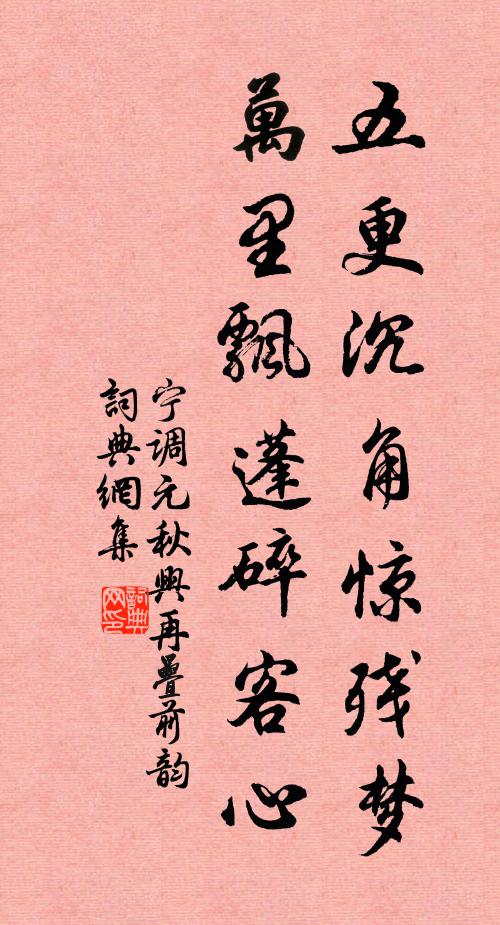 五更沉角惊残梦
萬里飄蓬碎客心
宁调元秋興再疊前韵
詞典網集
詞典网印